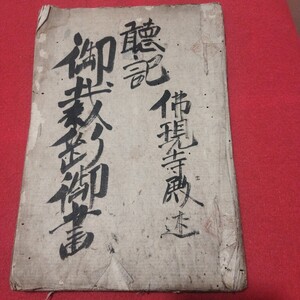 聽記
佛現寺殿述
御裁断御書